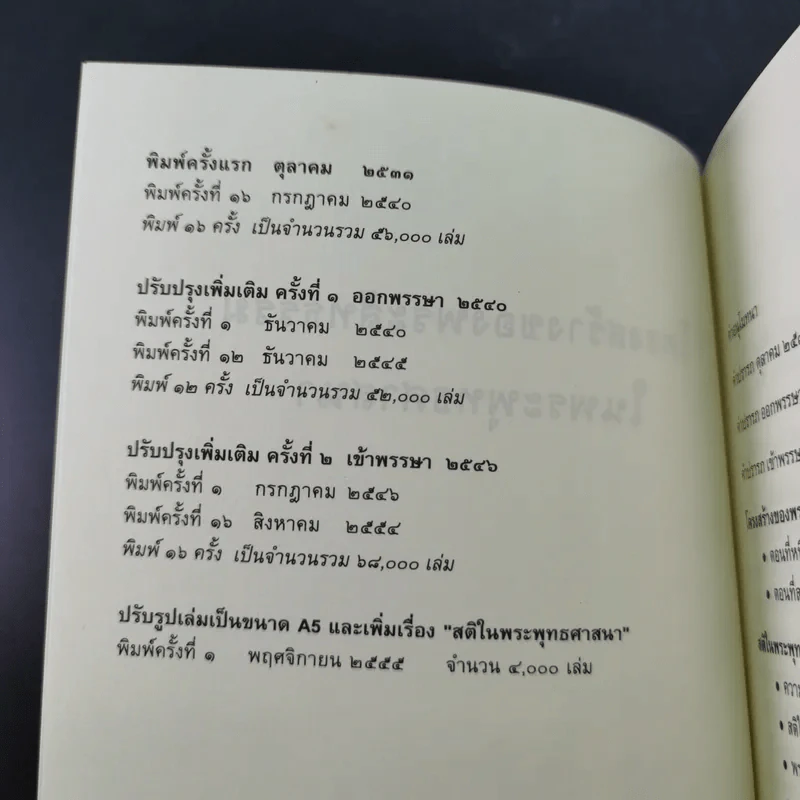 พิมพ์ครั้งแรก ตุลาคม ๒๕๓๑
พิมพ์ครั้งที่ ๑๖ กรกฎาคม ๒๕๔๐
พิมพ์ ๑๖ ครั้ง เป็นจำนวนรวม ๕๖,๐๐๐ เล่ม
ปรับปรุงเพิ่มเติม ครั้งที่ ๑ ออกพรรษา ๒๕๔๐
พิมพ์ครั้งที่ ๑ ธันวาคม ๒๕๔๐
พิมพ์ครั้งที่ ๑๒ ธันวาคม ๒๕๔๕
พิมพ์ ๑๒ ครั้ง เป็นจำนวนรวม ๕๒,๐๐๐ เล่ม
ปรับปรุงเพิ่มเติม ครั้งที่ ๒ เข้าพรรษา ๒๕๔๖
พิมพ์ครั้งที่ ๑ กรกฎาคม ๒๕๔๖
พิมพ์ครั้งที่ ๑๖ สิงหาคม ๒๕๕๔
พิมพ์ ๑๖ ครั้ง เป็นจำนวนรวม ๖๘,๐๐๐ เล่ม
ปรับรูปเล่มเป็นขนาด A5 และเพิ่มเรื่อง "สติในพระพุทธศาสนา"
พิมพ์ครั้งที่ ๑ พฤศจิกายน ๒๕๕๕ จำนวน ๔,๐๐๐ เล่ม
คำอนุโมทนา
คำปรารภ ตุลาคม
คำปรารภ ออกพรรษา
คำปรารภ เข้าพรรษา
โครงสร้างของ
• ตอนที่
• ตอนที่